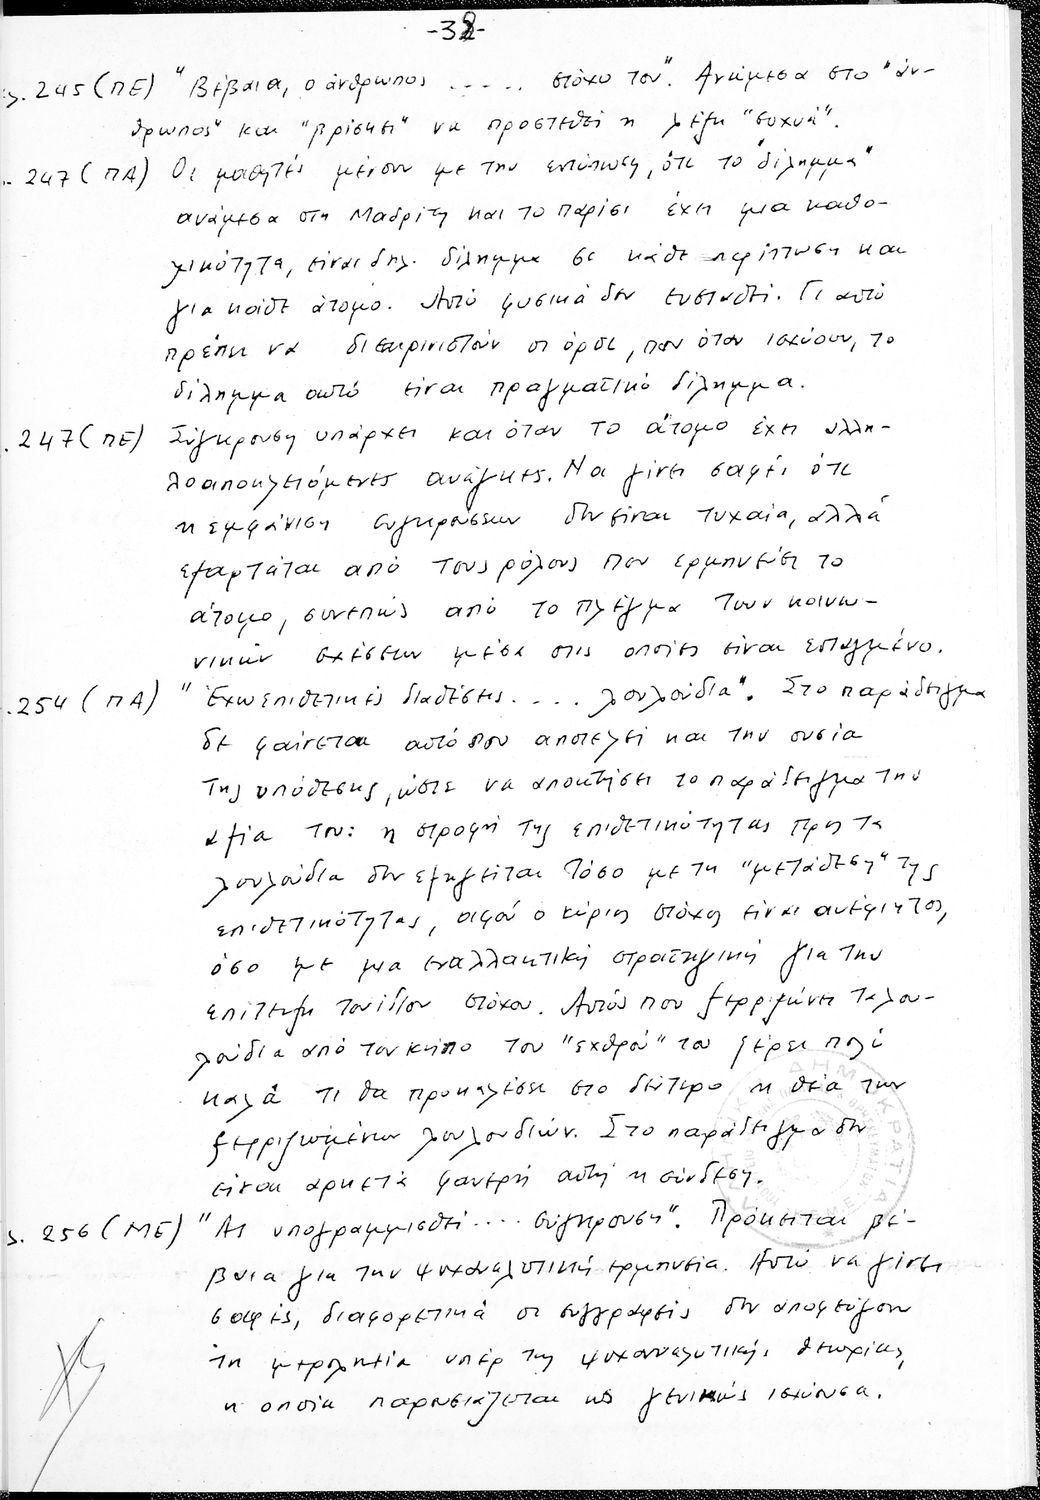 -38-
ς. 245 (ΠΕ) "Βέβαια, ο άνθρωπος ..... στόχο του". Ανάμεσα στο "άν-
θρωπος" και "βρίσκει" να προστεθεί η λέξη "συχνά".
247 (ΠΑ) Οι μαθητές μένουν με την εντύπωση, ότι το "δίλημμα"
ανάμεσα στη Μαδρίτη και το Παρίσι έχει μια καθο-
λικότητα, είναι δηλ. δίλημμα σε κάθε περίπτωση και
για κάθε άτομο. Αυτό φυσικά δεν ευσταθεί. Γι αυτό
πρέπει να διευκρινιστούν οι όροι, που όταν ισχύουν, το
δίλημμα αυτό είναι πραγματικό δίλημμα.
. 247 (ΠΕ) Σύγκρουση υπάρχει και όταν το άτομο έχει αλλη-
λοαποκλειόμενες ανάγκες. Να γίνει σαφές ότι
η εμφάνιση συγκρούσεων δεν είναι τυχαία, αλλά
εξαρτάται από τους ρόλους που ερμηνεύει το
άτομο, συνεπώς από το πλέγμα των κοινω-
νικών σχέσεων μέσα στις οποίες είναι ενταγμένο.
. 254 (ΠΑ) "Έχω επιθετικές διαθέσεις .... λουλούδια". Στο παράδειγμα
δε φαίνεται αυτό που αποτελεί και την ουσία
της υπόθεσης, ώστε να αποκτήσει το παράδειγμα την
αξία του: η στροφή της επιθετικότητας προς τα
λουλούδια δεν εξηγείται τόσο με τη "μετάθεση" της
επιθετικότητας, αφού ο κύριος στόχος είναι ανέφικτος,
όσο με μια εναλλακτική στρατηγική για την
επίτευξη του ίδιου στόχου. Αυτός που ξερριζώνει τα λου-
λούδια από τον κήπο του "εχθρού" του ξέρει πολύ
καλά τι θα προκαλέσει στο δεύτερο η θέα των
ξερριζωμένων λουλουδιών. Στο παράδειγμα δεν
είναι αρκετά φανερή αυτή η σύνδεση.
ς. 256 (ΜΕ) "Ας υπογραμμισθεί .... σύγκρουση". Πρόκειται βέ-
βαια για την ψυχαναλυτική ερμηνεία. Αυτό να γίνει
σαφές, διαφορετικά οι συγγραφείς δεν αποφεύγουν
τη μεροληψία υπέρ της ψυχαναλυτικής θεωρίας,
η οποία παρουσιάζεται ως γενικώς ισχύουσα.